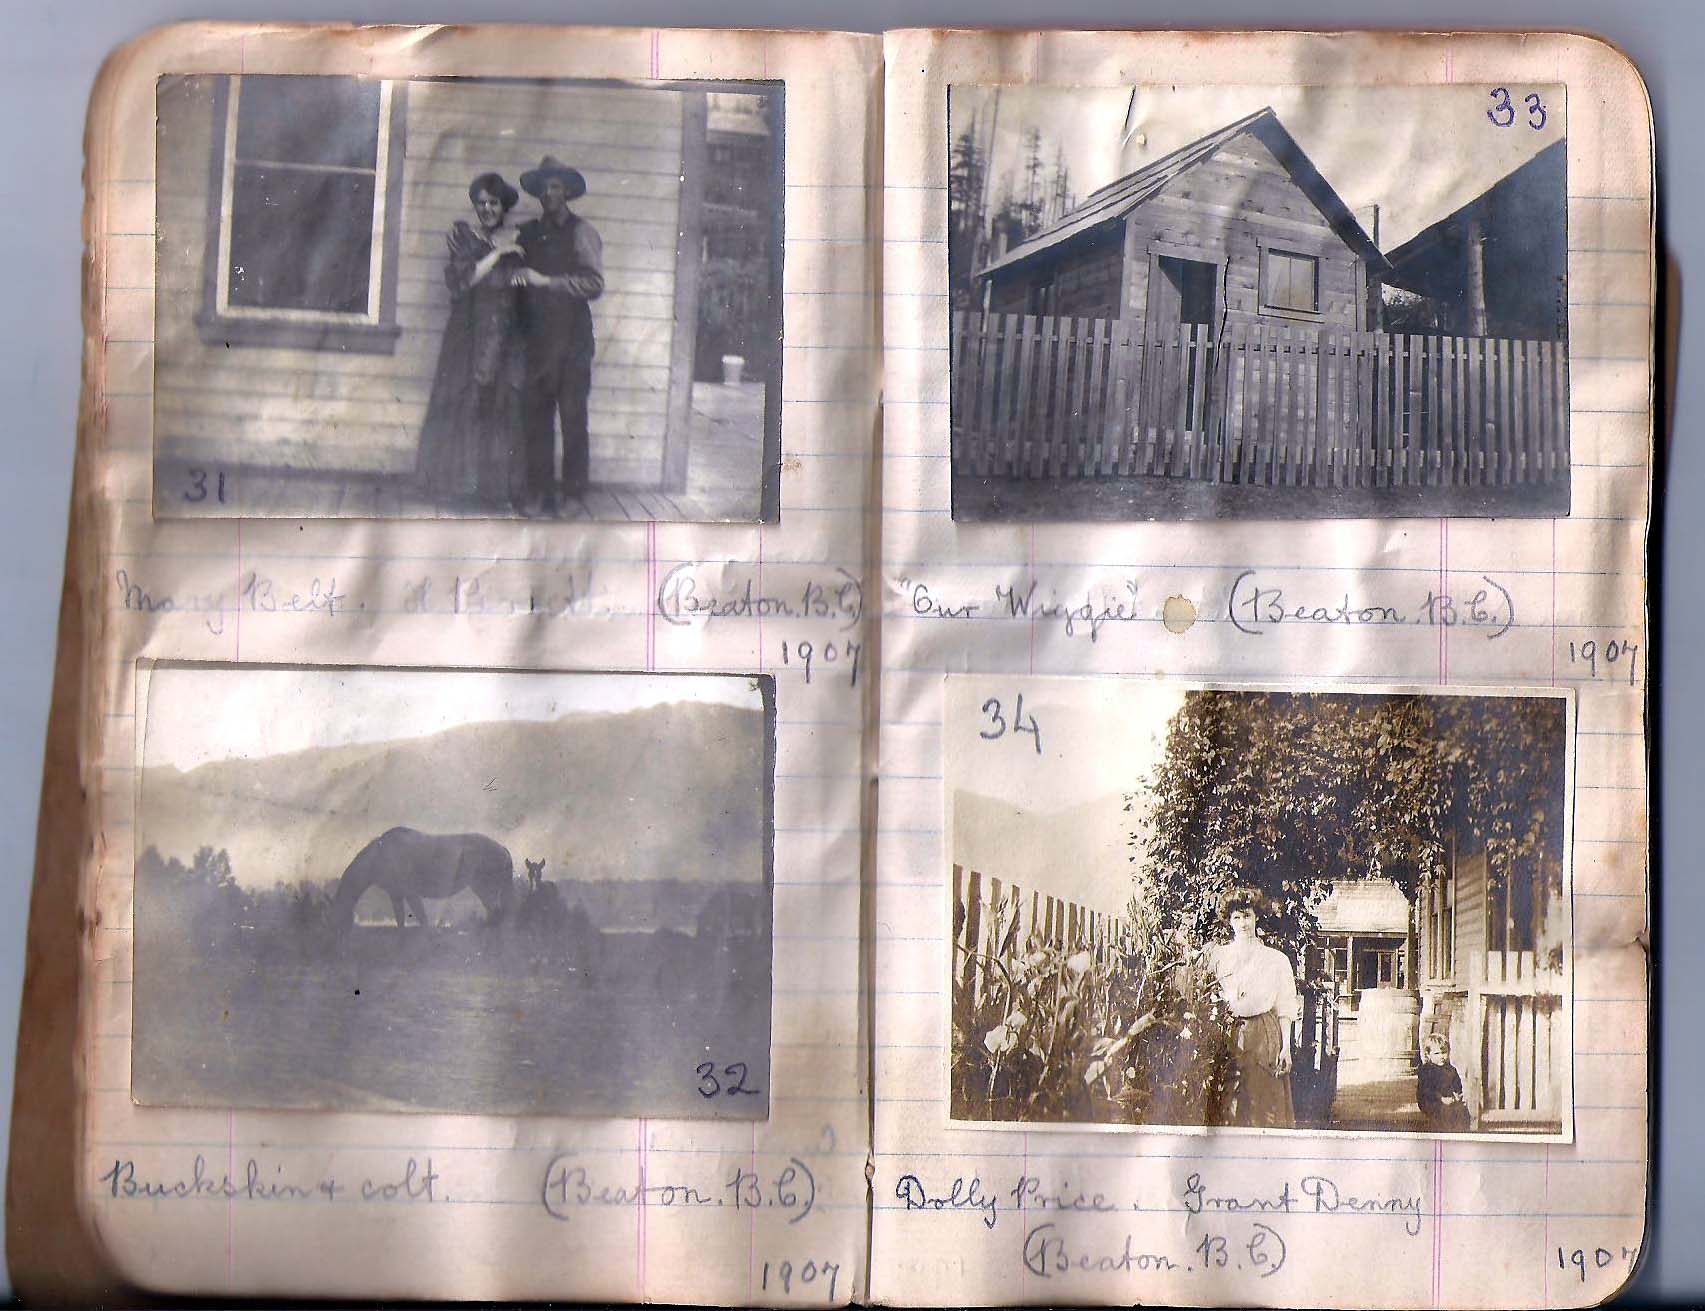 31
Mary Belt. (Beaton. B.C)
1907
32
Buckskin & colt. (Beaton. B.C)
1907
33
"Our Wiggie" (Beaton. B.C.)
1907
34
Dolly Price. Grant Denny
(Beaton. B.C)
1907